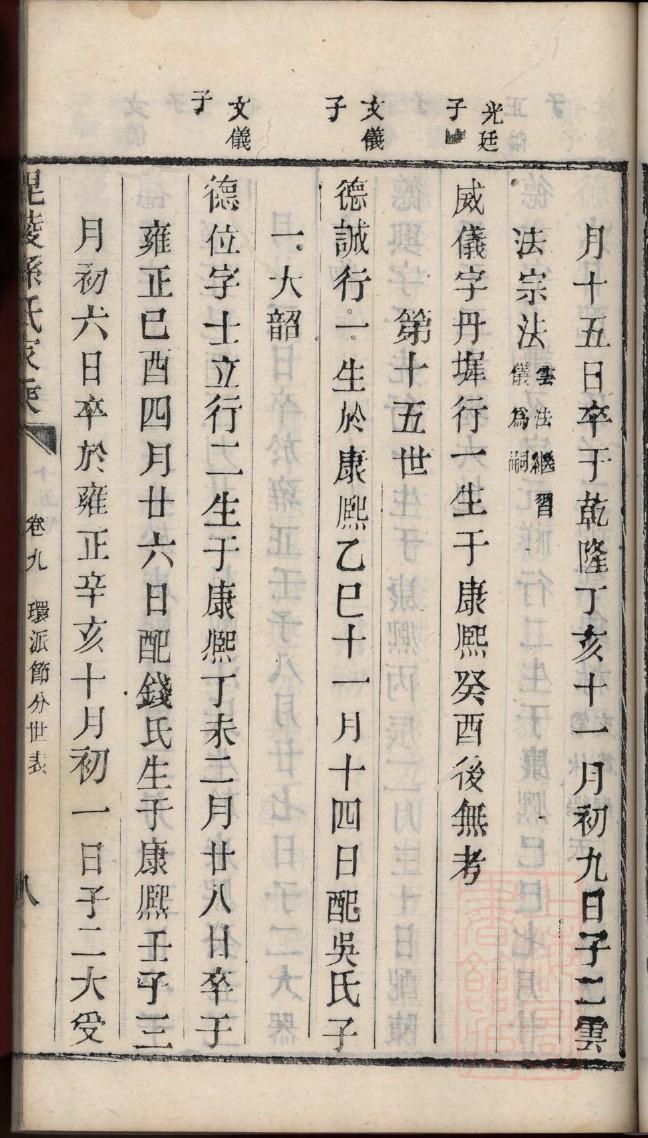 月十五日卒于乾隆丁亥十一月初九日子二雲
法宗法雲法繼習
儀為嗣
光廷
子
威儀字丹墀行一生于康熙癸酉後無考
第十五世
文儀
子
德誠行一生於康熙乙巳十一月十四日配吳氏子
一大韶
文儀
子
德位字士立行二生于康熙丁未二月廿八日卒于
雍正己酉四月廿六日配錢氏生于康熙壬子三
月初六日卒於雍正辛亥十月初一日子二大受
毘陵孫氏家乘
卷九 環派節分世表
八